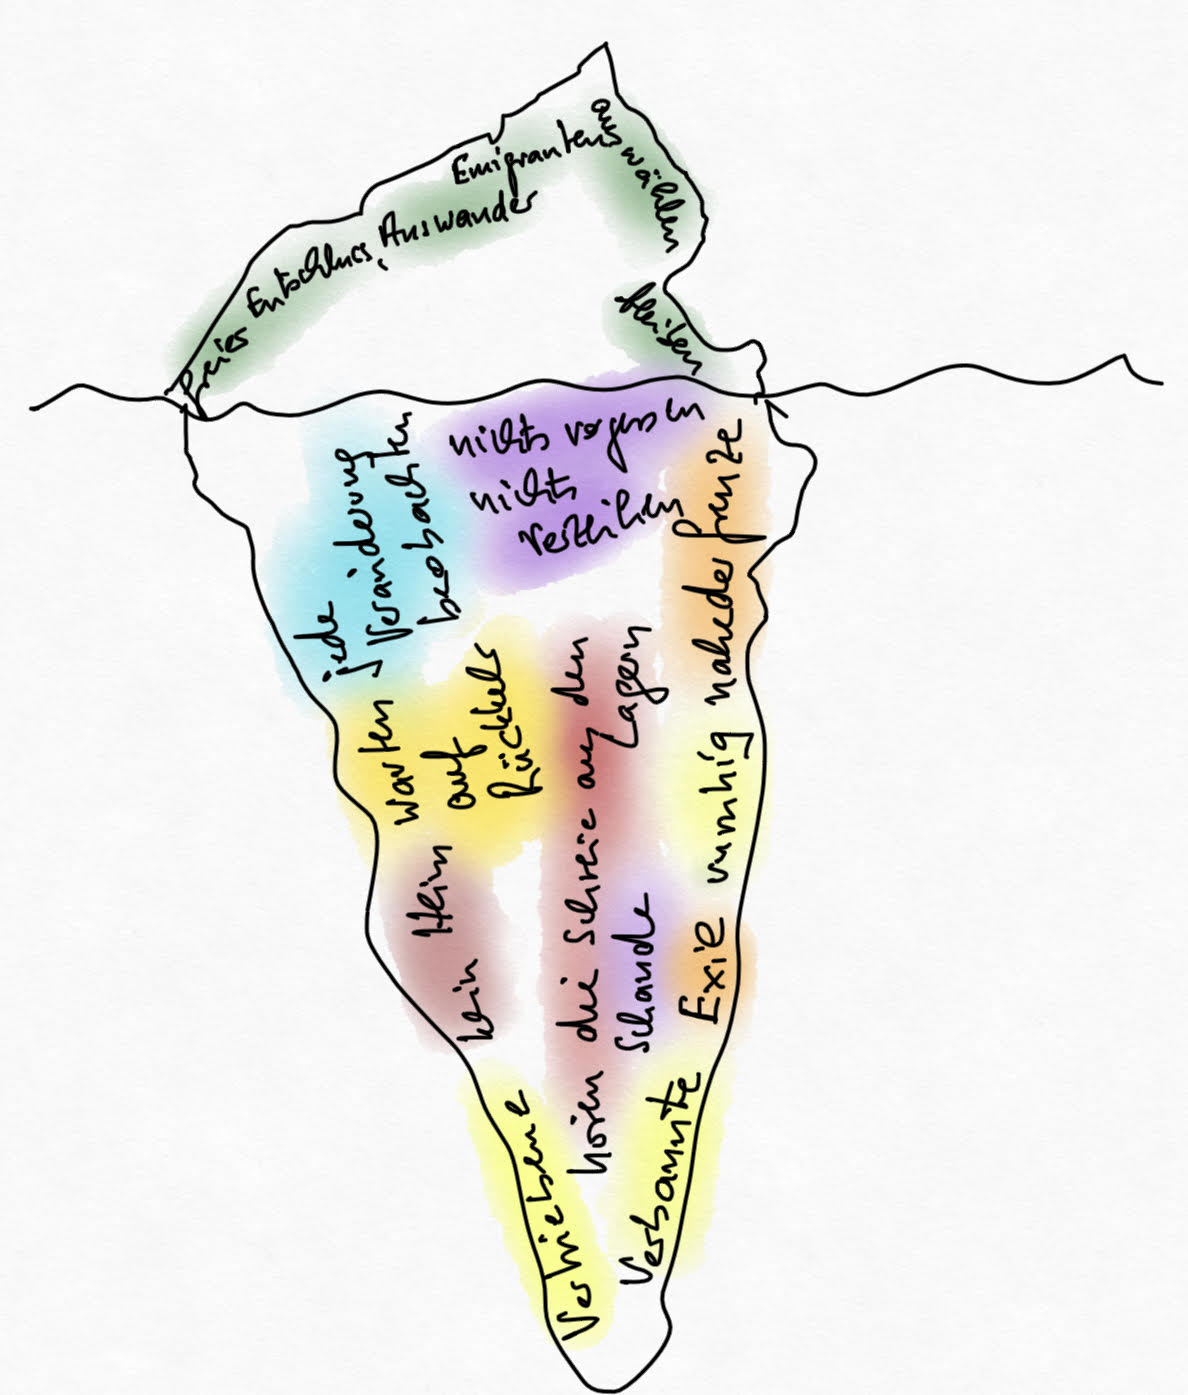 freies Entschluss,
Auswander
Emigranten
auswählen
bleiben
jede
Veränderung
beobachten
nichts vergessen
nichts
verzeihen
nahe der Grenze
warten
auf
Rückkehr
hören die Schreie aus den
Lagern
unruhig
kein Heim
Schande
Exil
Vertriebene
Verbannte